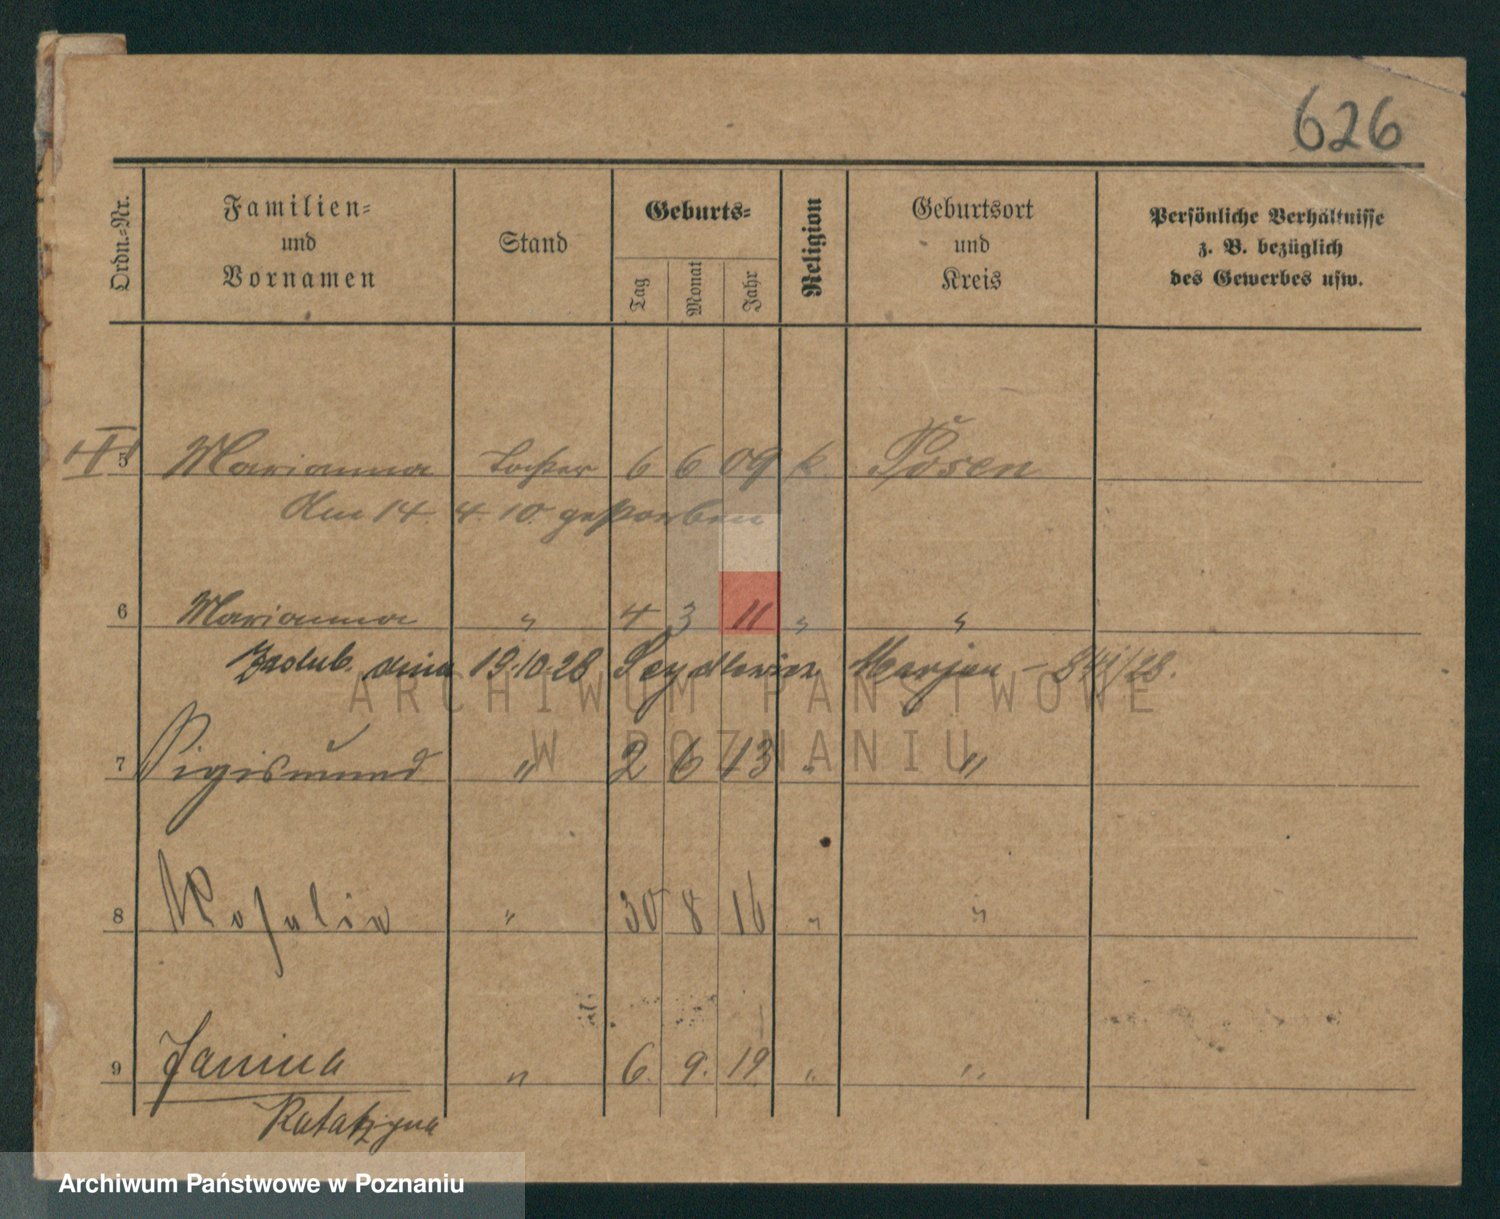 626
Ordn.-Nr.
Familien-
und
Vornamen
Stand
Geburts-
Tag
Monat
Jahr
Religion
Geburtsort
und
Kreis
Persönliche Verhältnisse
z. B. bezüglich
des Gewerbes usw.
5 Marianna Tochter 6 6 09 k. Posen
Am 14. 4. 10. gestorben
6 Marianna " 4 3 11 " "
Zaślub. dnia 19.10.28 Seydlewicz Marjan - 841/28.
ARCHIWUM PAŃSTWOWE
W POZNANIU
7 Sigismund " 2 6 13 " "
8 Rosalia " 30 8 16 " "
9 Janina " 6. 9. 19. " "
Katarzyna
Archiwum Państwowe w Poznaniu